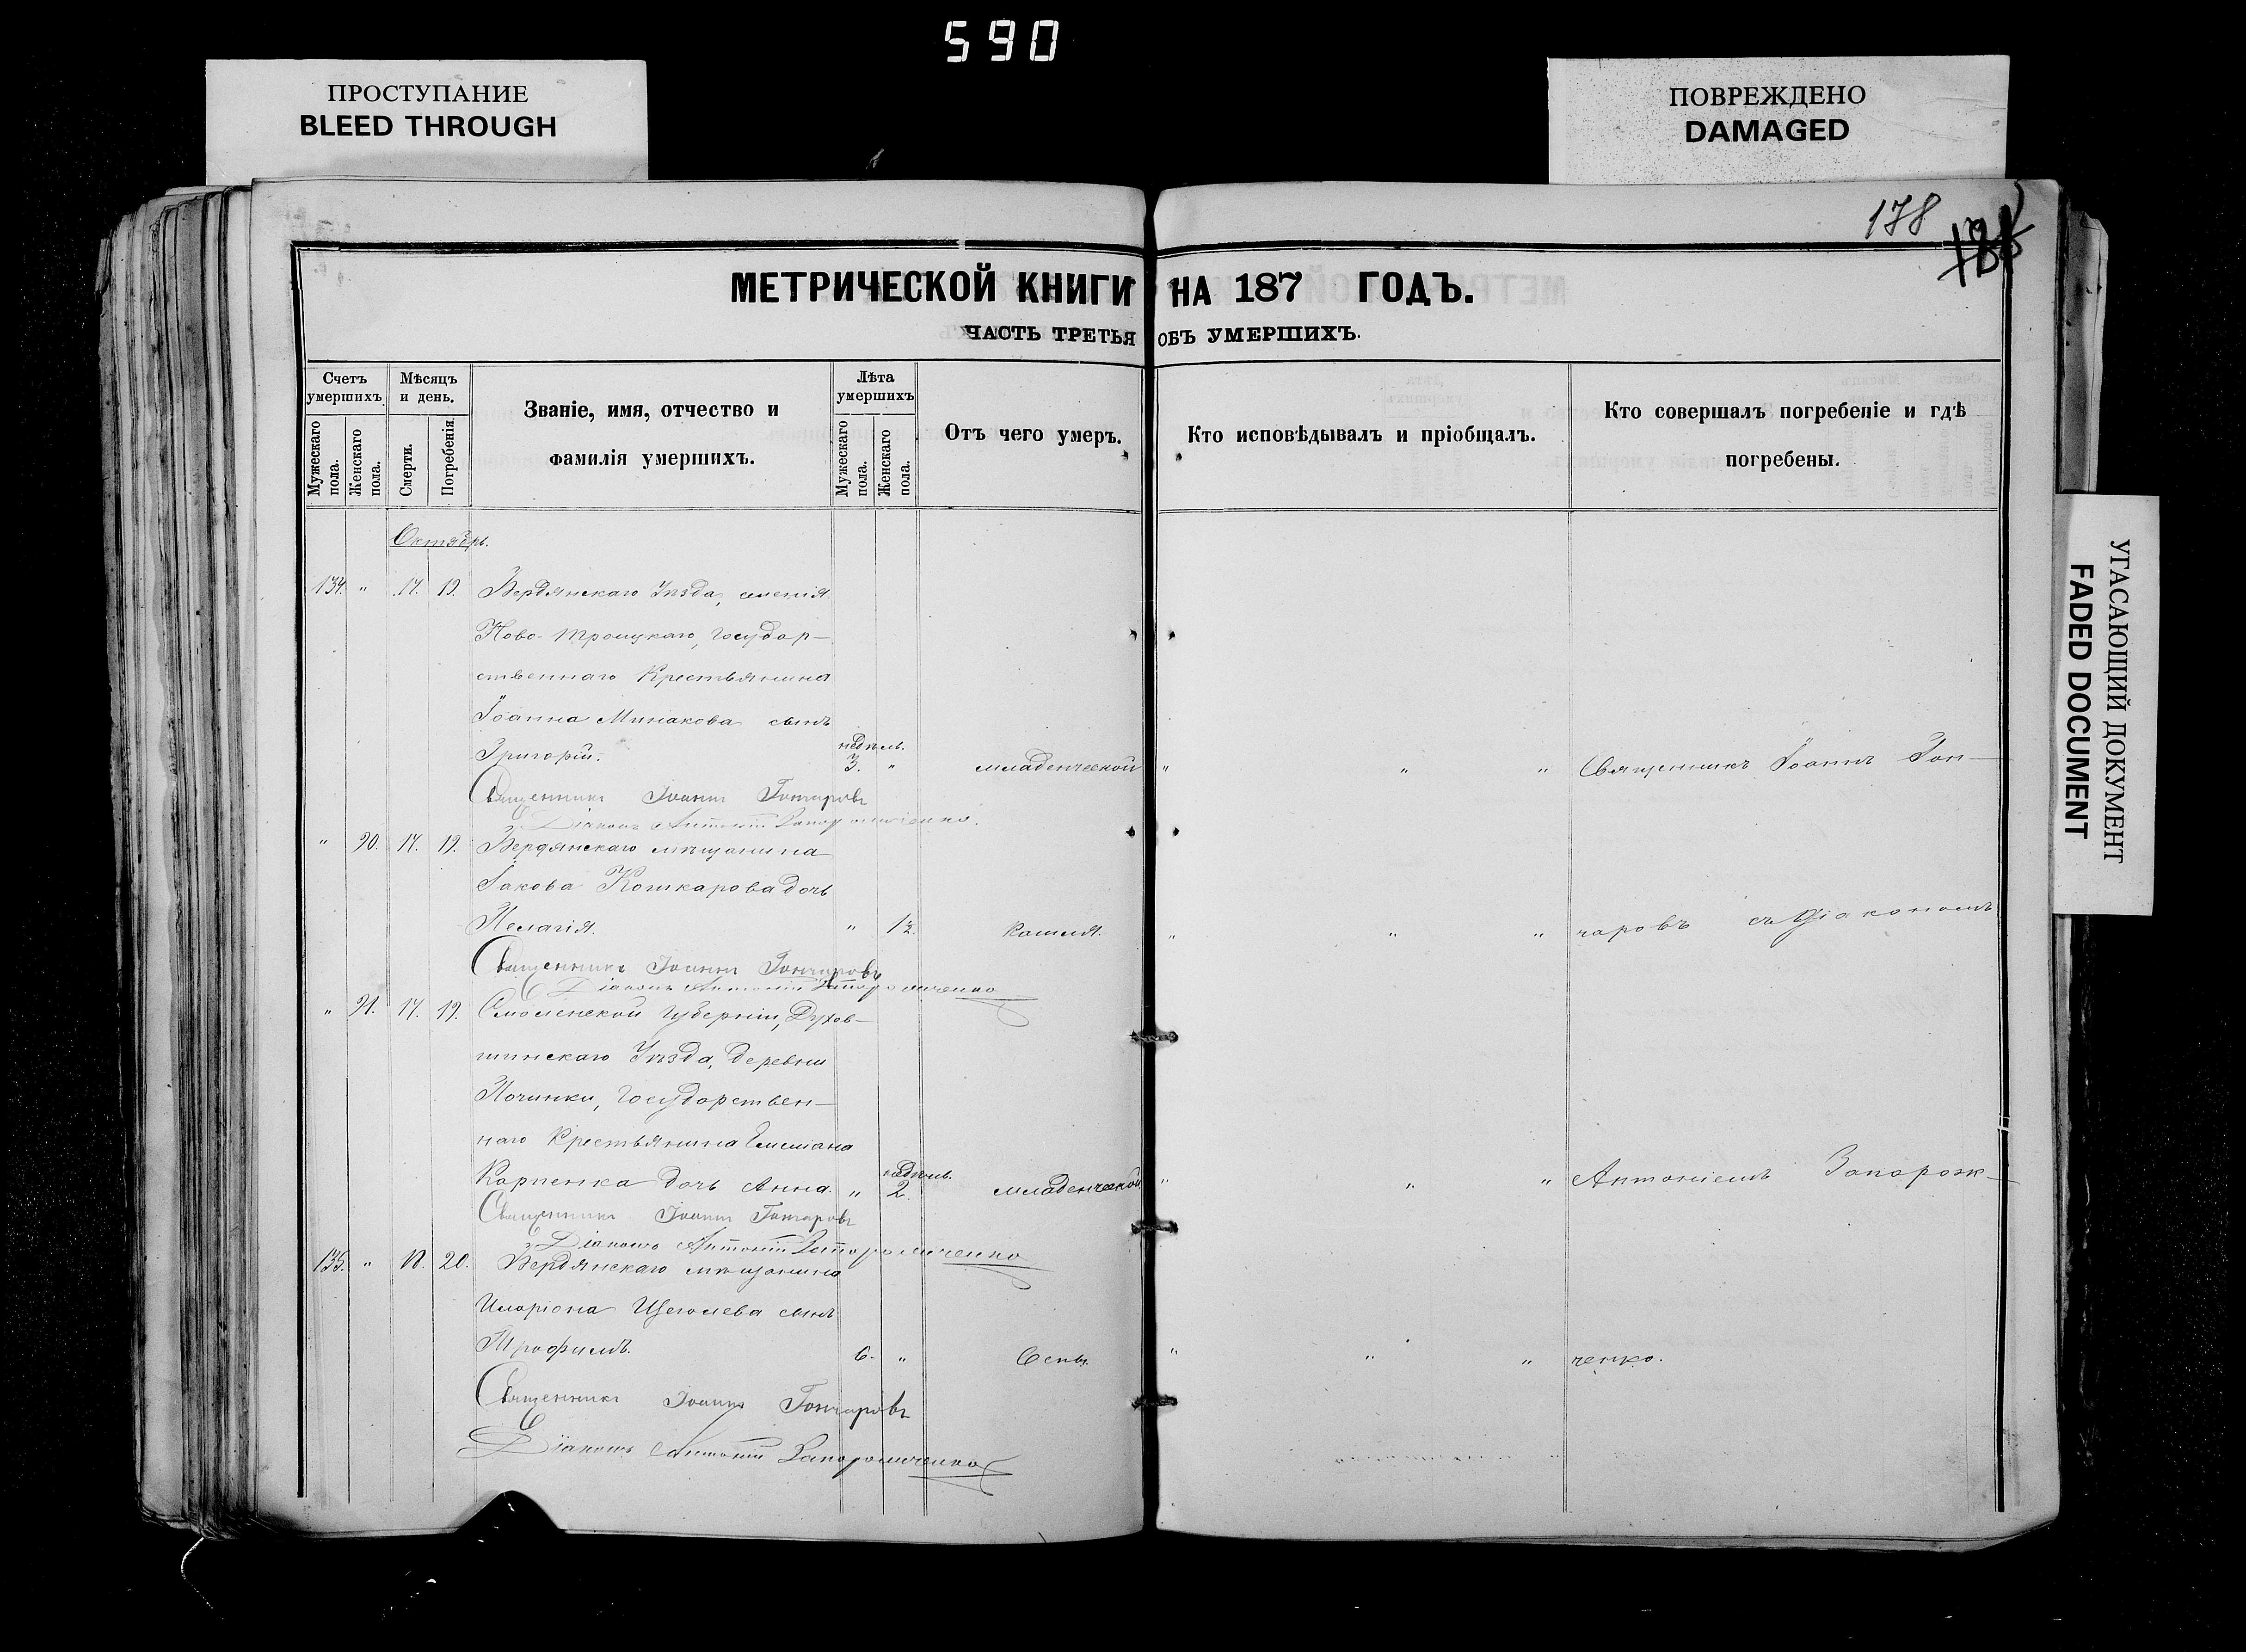 590
ПРОСТУПАНИЕ
BLEED THROUGH
ПОВРЕЖДЕНО
DAMAGED
УГАСАЮЩИЙ ДОКУМЕНТ
FADED DOCUMENT
178
МЕТРИЧЕСКОЙ КНИГИ НА 187 ГОДЪ.
ЧАСТЬ ТРЕТЬЯ ОБЪ УМЕРШИХЪ.
Счетъ умершихъ.
Мужескаго пола.
Женскаго пола.
Мѣсяцъ и день.
Смерти.
Погребенія.
Званіе, имя, отчество и
фамилія умершихъ.
Лѣта умершихъ
Мужескаго пола.
Женскаго пола.
Отъ чего умеръ.
Кто исповѣдывалъ и пріобщалъ.
Кто совершалъ погребеніе и гдѣ
погребены.
Октябрь.
134. " 17. 19. Бердянскаго Уѣзда, селенія
Ново-Троицкаго, государ-
ственнаго Крестьянина
Іоанна Минакова сынъ
недѣль.
Григорій. 3. " младенческой " " " Священникъ Іоаннъ Гон-
Священникъ Іоаннъ Гончаровъ
Діаконъ Антоній Запорожченко.
" 90. 17. 19. Бердянскаго мѣщанина
Іакова Кошкарова дочь
Пелагія. " 1½. Кашля. " " " чаровъ съ Діакономъ
Священникъ Іоаннъ Гончаровъ
Діаконъ Антоній Запорожченко
" 91. 17. 19. Смоленской губерніи, Духов-
щинскаго Уѣзда, деревни
Починки, Государствен-
наго Крестьянина Емеліана
недѣль.
Карпенка дочь Анна. " 2. младенческой " " " Антоніемъ Запорож-
Священникъ Іоаннъ Гончаровъ
Діаконъ Антоній Запорожченко
135. " 18. 20. Бердянскаго мѣщанина
Иларіона Щеголева сынъ
Трофимъ. 6. " Оспы. " " " ченко.
Священникъ Іоаннъ Гончаровъ
Діаконъ Антоній Запорожченко